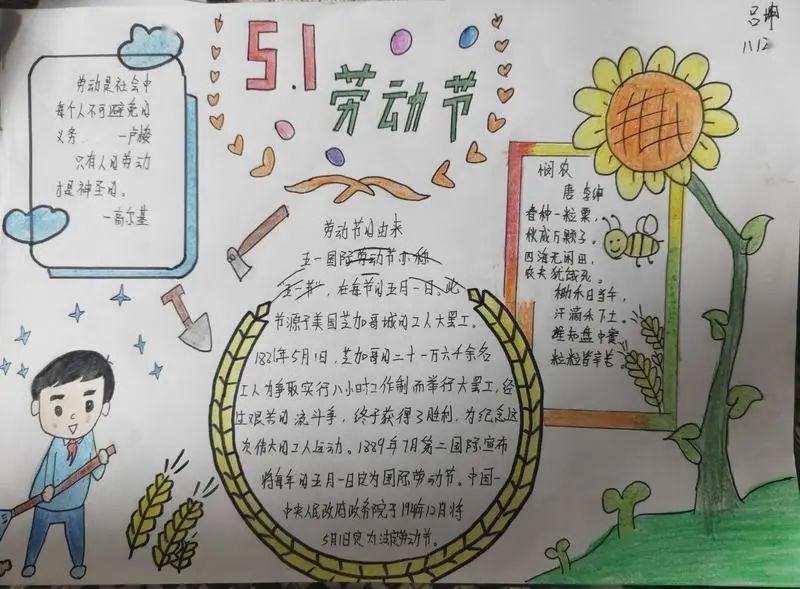 5.1
劳动节
吕坤
1112
劳动是社会中
每个人不可避免的
义务 —卢梭
只有人的劳动
才是神圣的。
—高尔基
劳动节的由来
五一国际劳动节亦称
"五一节", 在每节的五月一日。此
节源于美国芝加哥城的工人大罢工。
年5月1日, 芝加哥的二十一万六千余名
工人为争取实行八小时工作制而举行大罢工, 经
过艰苦的流斗手, 终于获得了胜利, 为纪念这
次伟大的工人运动。1889年7月第二国际宣布
将每年的五月一日定为国际劳动节。中国一
中央人民政府政务院于 12月将
5月1日定为法定劳动节。
悯农
唐 李绅
春种一粒粟,
秋成万颗子。
四海无闲田,
农夫犹饿死。
锄禾日当午,
汗滴禾下土。
谁知盘中餐,
粒粒皆辛苦